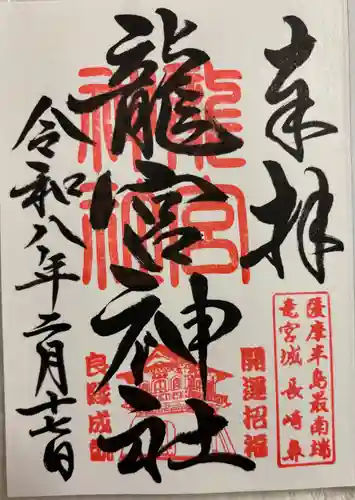 奉拝
薩摩半島最南端
竜宮城 長崎鼻
龍宮神社
龍宮神社
開運招福
良縁成就
令和八年二月十七日